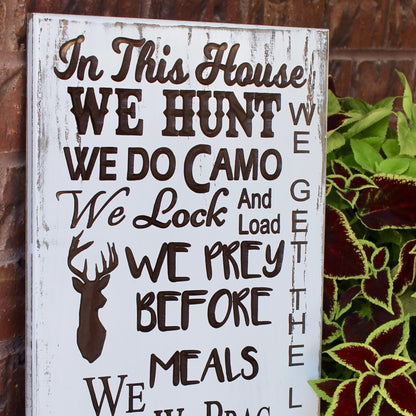 In This House
WE HUNT
WE DO CAMO
We Lock And Load
WE PREY
BEFORE
MEALS
WE
WE GET THE L